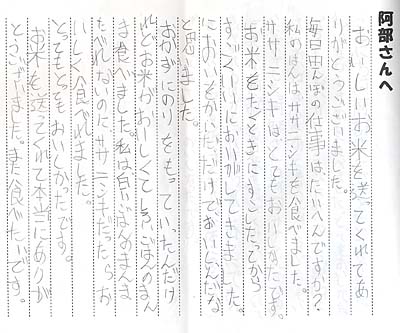 阿部さんへ
おいしいお米を送ってくれてあ
りがとうございました。
毎日田んぼの仕事は、たいへんですか?
私のはんは、ササニシキを食べました。
ササニシキは、とてもおいしかったです。
お米をたくときにすこしたってから
すごくいいにおいがしてきました。
においをかいだだけで、おいしんだな
と思いました。
おかずにのりをもっていったんだけ
れどお米がおいしくてしろいごはんのまん
ま食べました。私は白いごはんのまんま
たべれないのに、ササニシキだったらお
いしく食べれました。
とてもとてもおいしかったです。
お米を送ってくれて本当にありが
とうございました。また食べたいです。